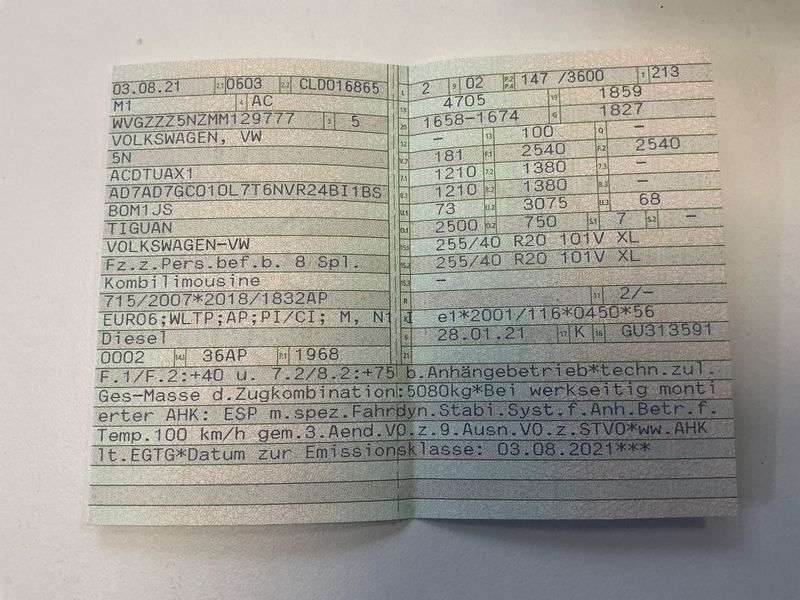 03.08.21 2.1 0603 2.2 CLD016865
M1 4 AC
WVGZZZ5NZMM129777 3 5
VOLKSWAGEN, VW
5N
ACDTUAX1
AD7AD7GC010L7T6NVR24BI1BS
BOM1JS
TIGUAN
VOLKSWAGEN-VW
Fz.z.Pers.bef.b. 8 Spl.
Kombilimousine
715/2007*2018/1832AP
EURO6;WLTP;AP;PI/CI; M, N1 I
Diesel
0002 14.1 36AP P.1 1968
L 2 9 02 P.2 P.4 147 /3600 T 213
18 4705 19 1859
20 1658-1674 G 1827
12 - 13 100 Q -
V.7 181 F.1 2540 F.2 2540
7.1 1210 7.2 1380 7.3 -
8.1 1210 8.2 1380 8.3 -
U.1 73 U.2 3075 U.3 68
O.1 2500 O.2 750 S.1 7 S.2 -
15.1 255/40 R20 101V XL
15.2 255/40 R20 101V XL
15.3 -
R 11 2/-
K e1*2001/116*0450*56
6 28.01.21 17 K 16 GU313591
21
F.1/F.2:+40 u. 7.2/8.2:+75 b.Anhängebetrieb*techn.zul.
Ges-Masse d.Zugkombination:5080kg*Bei werkseitig monti
erter AHK: ESP m.spez.Fahrdyn.Stabi.Syst.f.Anh.Betr.f.
Temp.100 km/h gem.3.Aend.VO.z.9.Ausn.VO.z.STVO*ww.AHK
lt.EGTG*Datum zur Emissionsklasse: 03.08.2021***